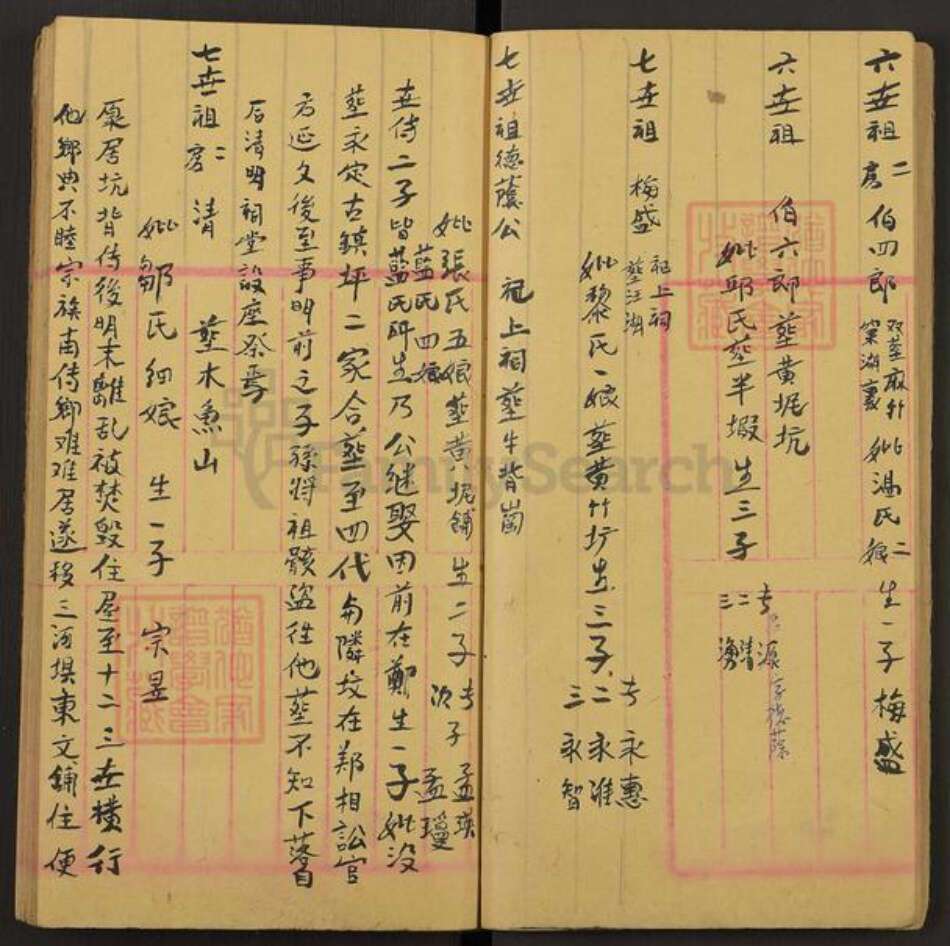 六世祖 二房 伯四郎 双葬麻竹窠湖裏 妣温氏二娘 生一子 梅盛
六世祖 伯六郎 葬黄坭坑
妣邱氏葬半塅 生三子 长源 字德荫 二清 三漋
七世祖 梅盛 祀上祠 葬江湖
妣黎氏一娘 葬黄竹圹 生三子 长永惠 二永淮 三永智
七世祖德蔭公 祀上祠葬牛背崗
妣張氏五娘葬黄坭舖 生二子 长子孟瑛
藍氏四娘 次子孟瓊
世传二子皆藍氏所生乃公继娶因前在鄭生一子妣没
葬永定古鎮坪二家合葬至四代与隣坟在郑相訟官
方延久後至事明前之子孫将祖骸盗往他葬不知下落
后清明祠堂設座祭焉
七世祖 二房 清 葬木魚山
妣鄒氏細娘 生一子 宗昱
原居坑背传後明末離乱被焚毁住屋至十二三世横行
他鄉典不睦宗族南传鄉难难居遂移三河填東文鋪住便
FamilySearch